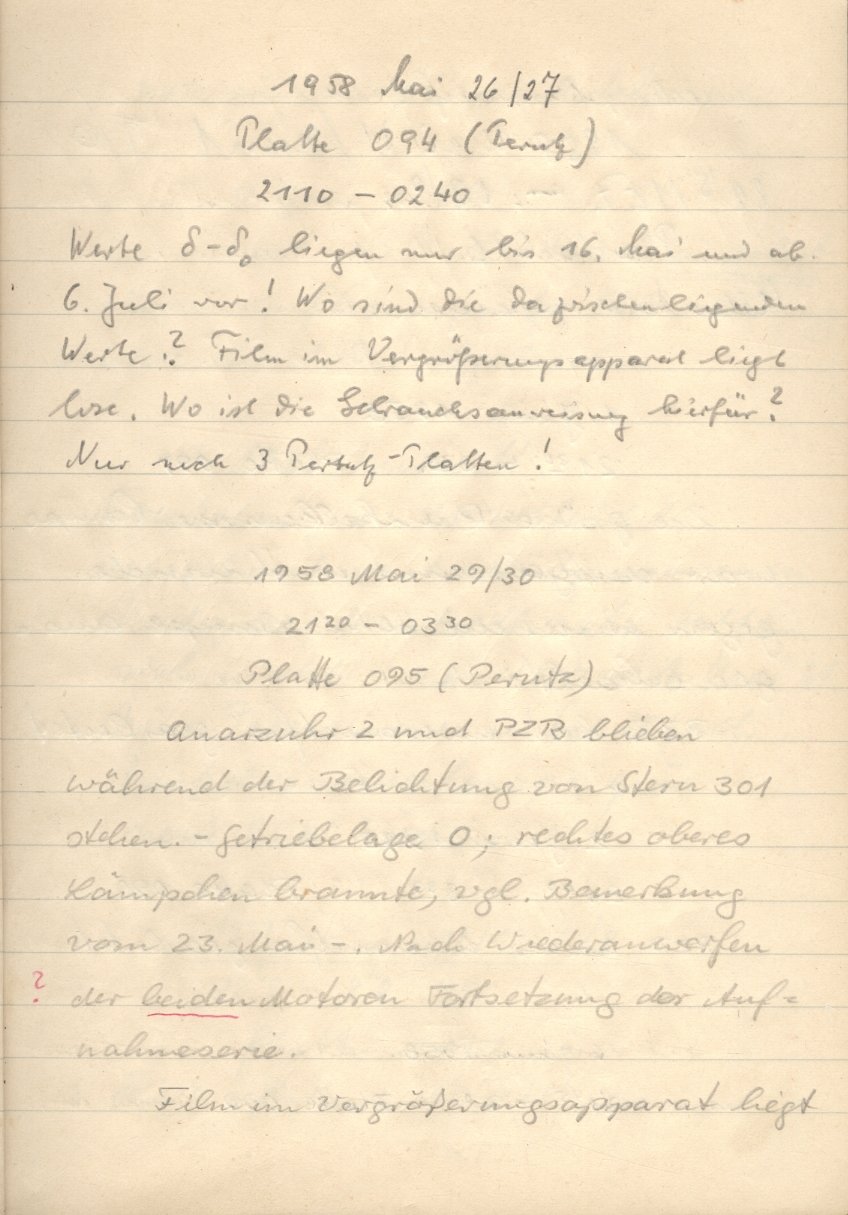 1958 Mai 26/27
Platte 094 (Perutz)
2110 – 0240
Werte δ-δ₀ liegen nur bis 16. Mai und ab
6. Juli vor! Wo sind die dazwischenliegenden
Werte? Film im Vergrößerungsapparat liegt
lose. Wo ist die Gebrauchsanweisung hierfür?
Nur noch 3 Perutz-Platten!
1958 Mai 29/30
21²⁰ – 03³⁰
Platte 095 (Perutz)
Quarzuhr 2 und PZR blieben
während der Belichtung von Stern 301
stehen. – Getriebelage 0; rechtes oberes
Lämpchen brannte, vgl. Bemerkung
vom 23. Mai –. Nach Wiederanwerfen
? der beiden Motoren Fortsetzung der Auf=
nahmeserie.
Film im Vergrößerungsapparat liegt